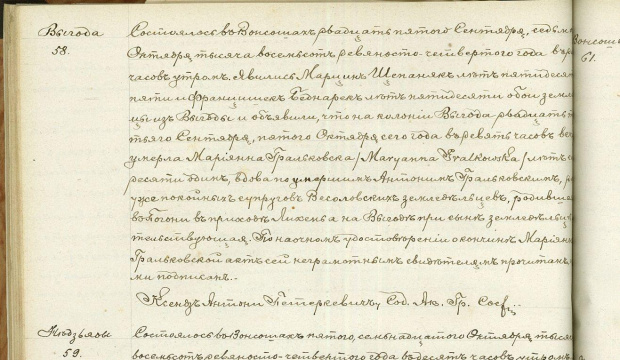 Выгода
58.
Состоялось въ Вонсошахъ двадцать пятого Сентября, седьм
Октября тысяча восемьсотъ девяносто-четвертого года въ
часовъ утромъ. Явились Марцинъ Щепанякъ лѣтъ пятидеся
пяти и Францишекъ Беднарекъ лѣтъ пятидесяти обои земле
цы изъ Выгоды и объявили, что на колоніи Выгода двадцать т
тьяго Сентября, пятого Октября сего года въ девять часовъ ве
умерла Маріянна Гральковска /Maryanna Gralkowska/ лѣтъ
десяти одинъ, вдова по умершимъ Антонимъ Гральковскимъ,
уже покойныхъ супруговъ Весоловскихъ земледѣльцевъ, родивше
въ Гогони въ приходѣ Лихеньа на Выгодѣ при сынѣ земледѣльц
тельствующая. По наочномъ удостовѣреніи о кончинѣ Маріян
Гральковской актъ сей неграмотнымъ свидѣтелямъ прочитанъ
ми подписан..
Ксендзъ Антони Петеркевичъ, Сод. Ак. Гр. Сос
Вонсош
61.
59.
Состоялось въ Вонсошахъ пятого, семьнадцатого Октября тыся
восемьсотъ девяносто-четвертого года въ десять часовъ утромъ